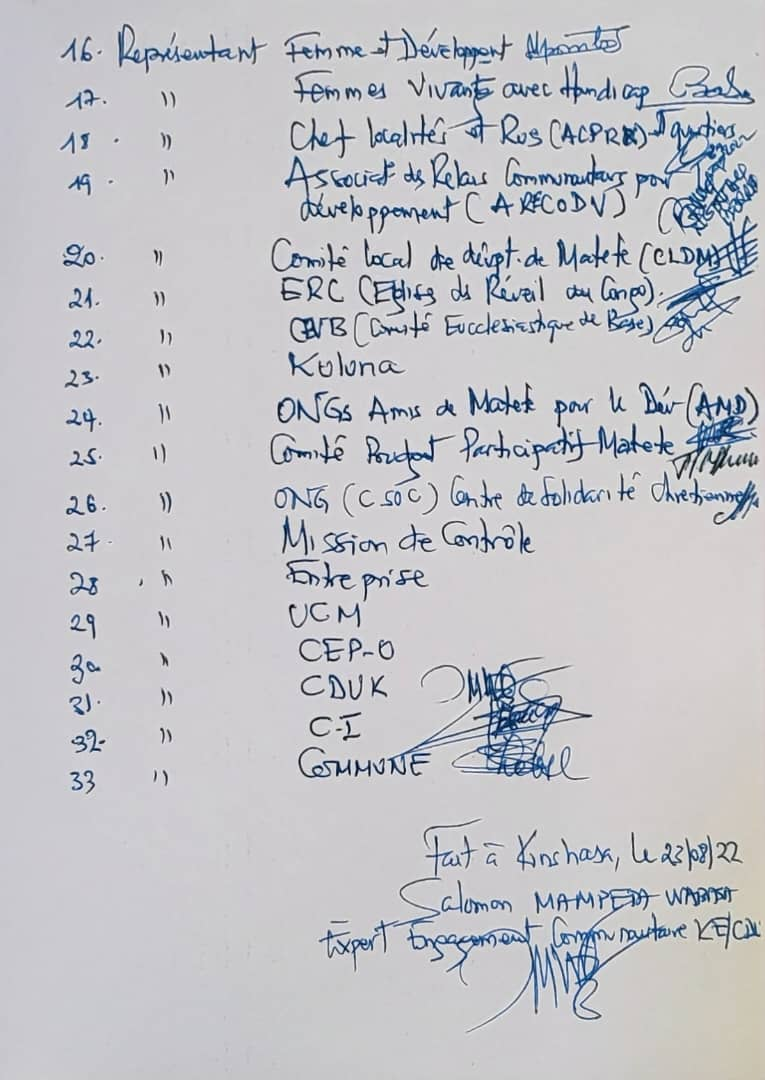 16. Représentant Femme et Développent
17. " Femmes Vivants avec Handicap
18. " Chef localités et Rus (ACPRR) quartiers
19. " Associat des Relais Communautairs pour
développement (ARECODV)
20. " Comité local de dévpt de Matete (CLDM)
21. " ERC (Eglise de Réveil au Congo).
22. " CEVB (Comité Eucclesiastique de Base)
23. " Kuluna
24. " ONGs Amis de Matete pour le Dév (AMD)
25. " Comité Participatif Matete
26. " ONG (CSOC) Centre de Solidarité chretienne
27. " Mission de Contrôle
28. " Entreprise
29 " UCM
30 " CEP-O
31. " CDUK
32. " C-I
33 " COMMUNE
Fait à Kinshasa, le 23/08/22
Salomon MAMPETA WABASA
Expert Engagement Communautaire KE/CDUK